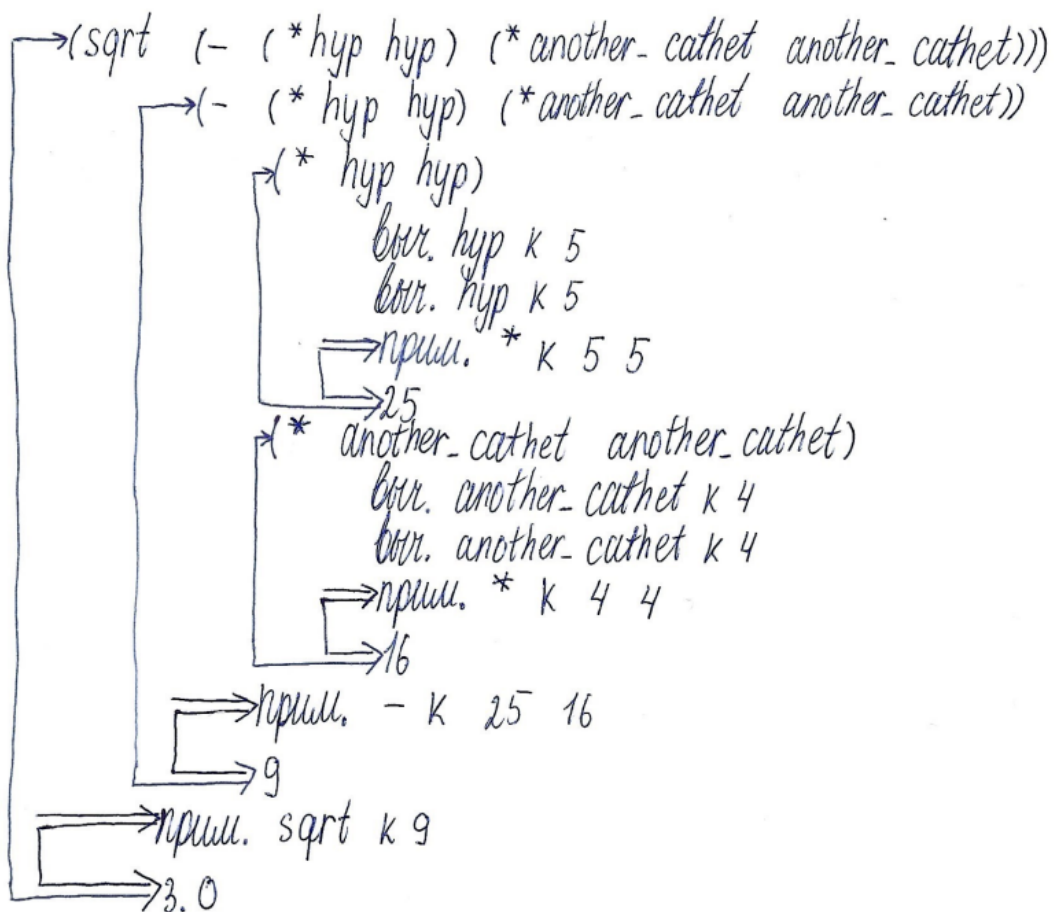 (sqrt (- (*hyp hyp) (*another_cathet another_cathet)))
(- (* hyp hyp) (*another_cathet another_cathet))
(* hyp hyp)
выч. hyp к 5
выч. hyp к 5
прим. * к 5 5
25
(* another_cathet another_cathet)
выч. another_cathet к 4
выч. another_cathet к 4
прим. * к 4 4
16
прим. - к 25 16
9
прим. sqrt к 9
3.0